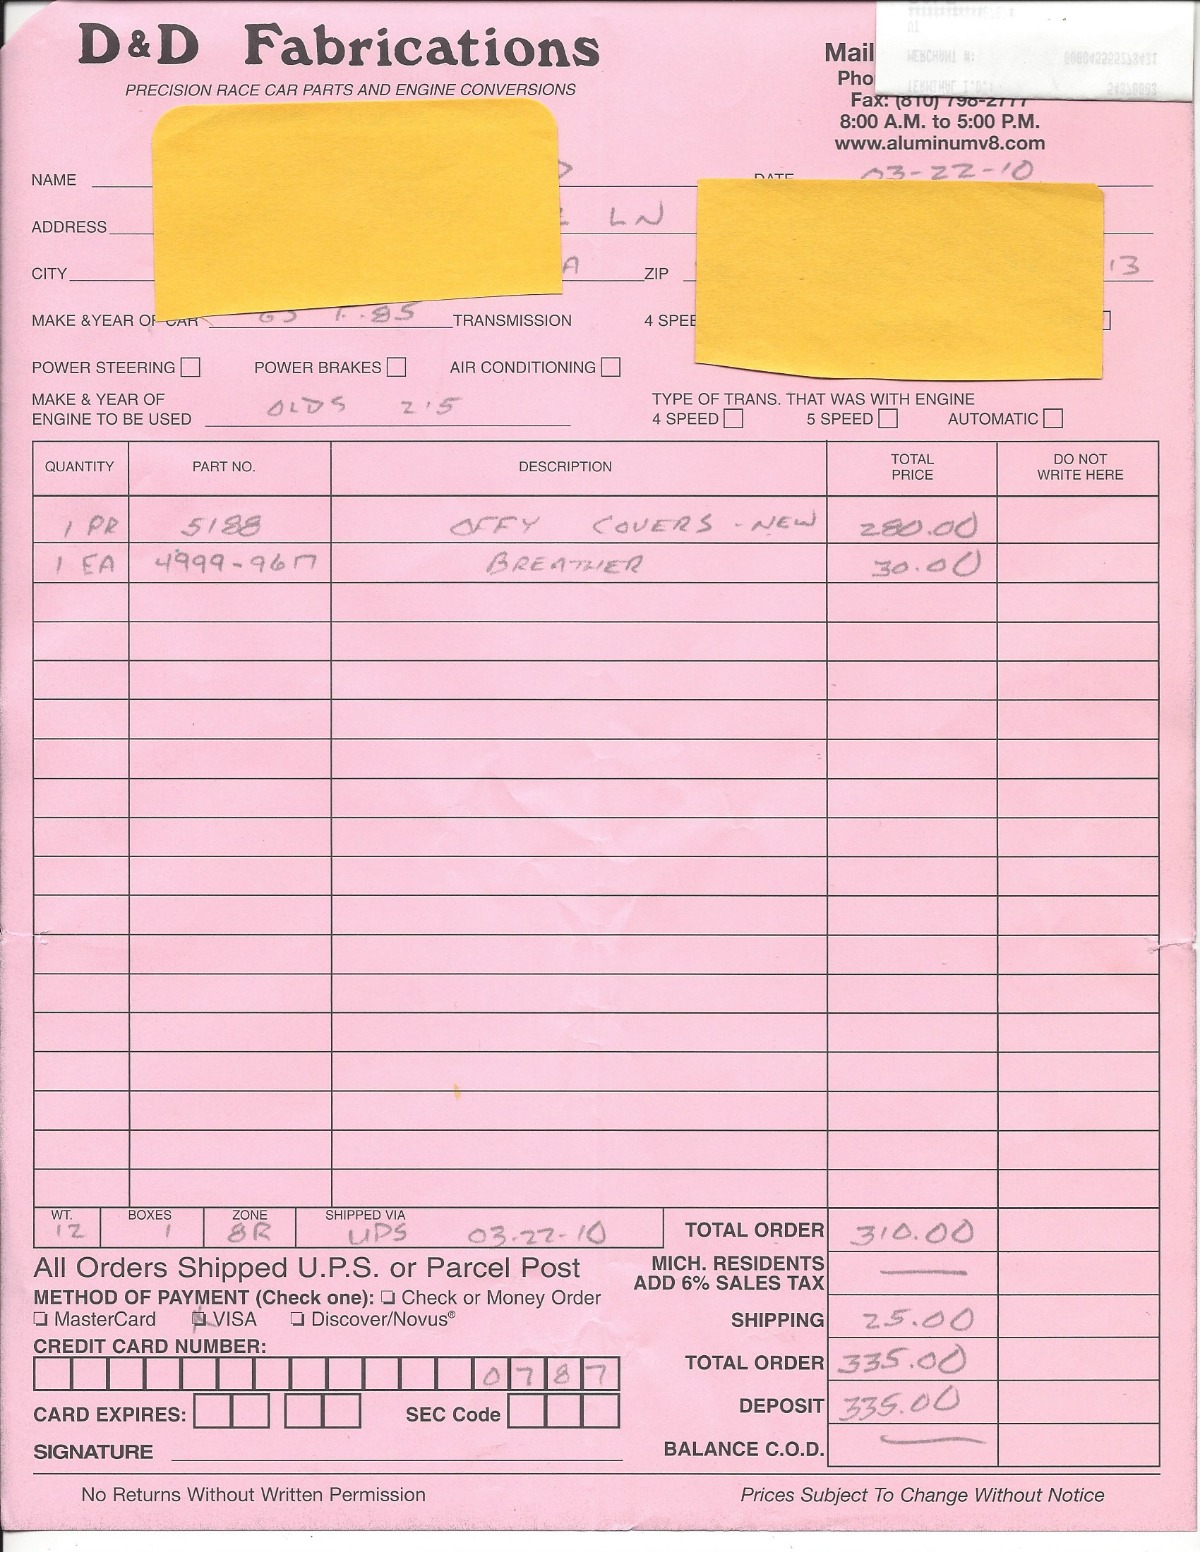 D&D Fabrications
PRECISION RACE CAR PARTS AND ENGINE CONVERSIONS
Mail
Pho
Fax: (810) 798-2777
8:00 A.M. to 5:00 P.M.
www.aluminumv8.com
MERCHANT #:
NAME DATE 03-22-10
ADDRESS LN
CITY A ZIP 13
MAKE &YEAR OF CAR 85 TRANSMISSION 4 SPEE
POWER STEERING POWER BRAKES AIR CONDITIONING
MAKE & YEAR OF
ENGINE TO BE USED OLDS 215
TYPE OF TRANS. THAT WAS WITH ENGINE
4 SPEED 5 SPEED AUTOMATIC
QUANTITY PART NO. DESCRIPTION TOTAL PRICE DO NOT WRITE HERE
1 PR 5188 OFFY COVERS - NEW 280.00
1 EA 4999-9617 BREATHER 30.00
WT. 12 BOXES 1 ZONE 8R SHIPPED VIA UPS 03-22-10
TOTAL ORDER 310.00
All Orders Shipped U.P.S. or Parcel Post
MICH. RESIDENTS
ADD 6% SALES TAX —
METHOD OF PAYMENT (Check one): Check or Money Order
MasterCard VISA Discover/Novus®
SHIPPING 25.00
CREDIT CARD NUMBER:
0787
TOTAL ORDER 335.00
CARD EXPIRES: SEC Code
DEPOSIT 335.00
SIGNATURE
BALANCE C.O.D. —
No Returns Without Written Permission
Prices Subject To Change Without Notice